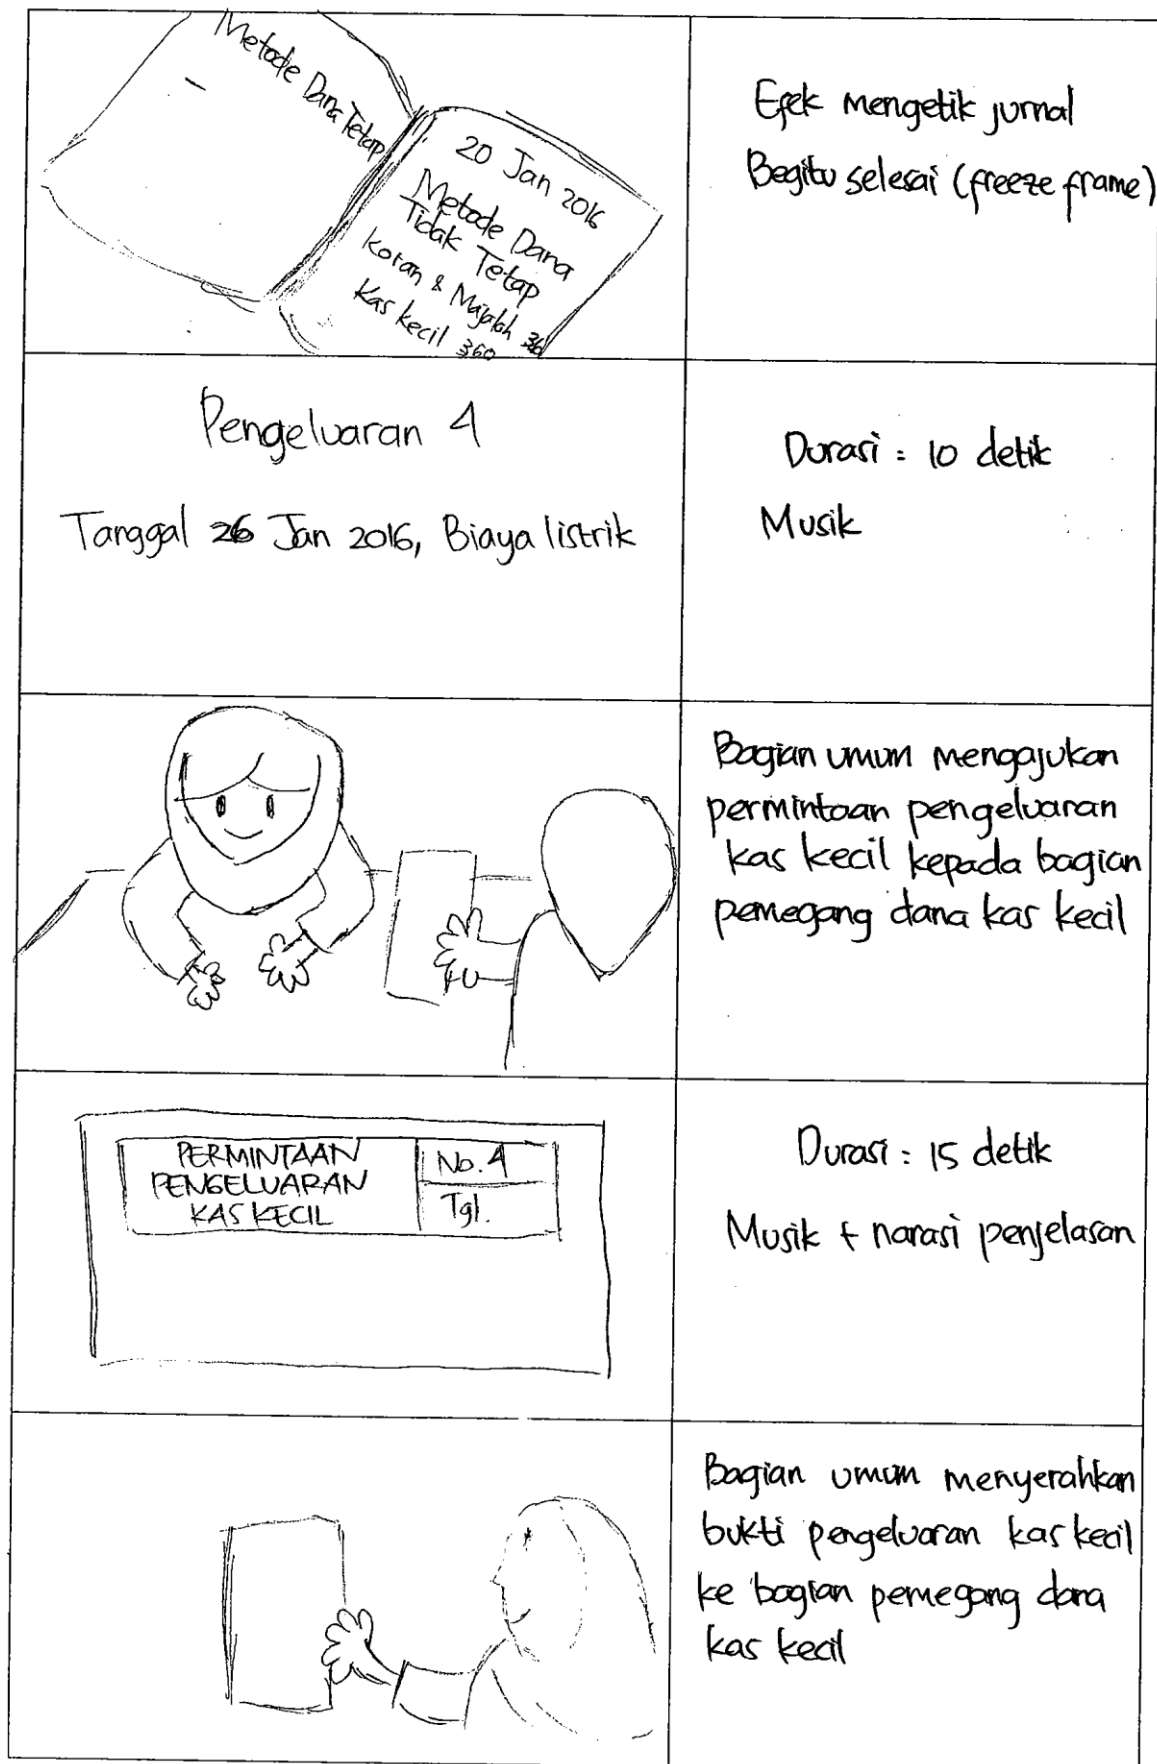 Metode Dana Tetap
20 Jan 2016
Metode Dana
Tidak Tetap
Koran & Majalah 360
Kas kecil 360
Efek mengetik jurnal
Begitu selesai (freeze frame)
Pengeluaran 4
Tanggal 26 Jan 2016, Biaya listrik
Durasi : 10 detik
Musik
Bagian umum mengajukan
permintaan pengeluaran
kas kecil kepada bagian
pemegang dana kas kecil
PERMINTAAN
PENGELUARAN
KAS KECIL
No. 4
Tgl.
Durasi : 15 detik
Musik + narasi penjelasan
Bagian umum menyerahkan
bukti pengeluaran kas kecil
ke bagian pemegang dana
kas kecil